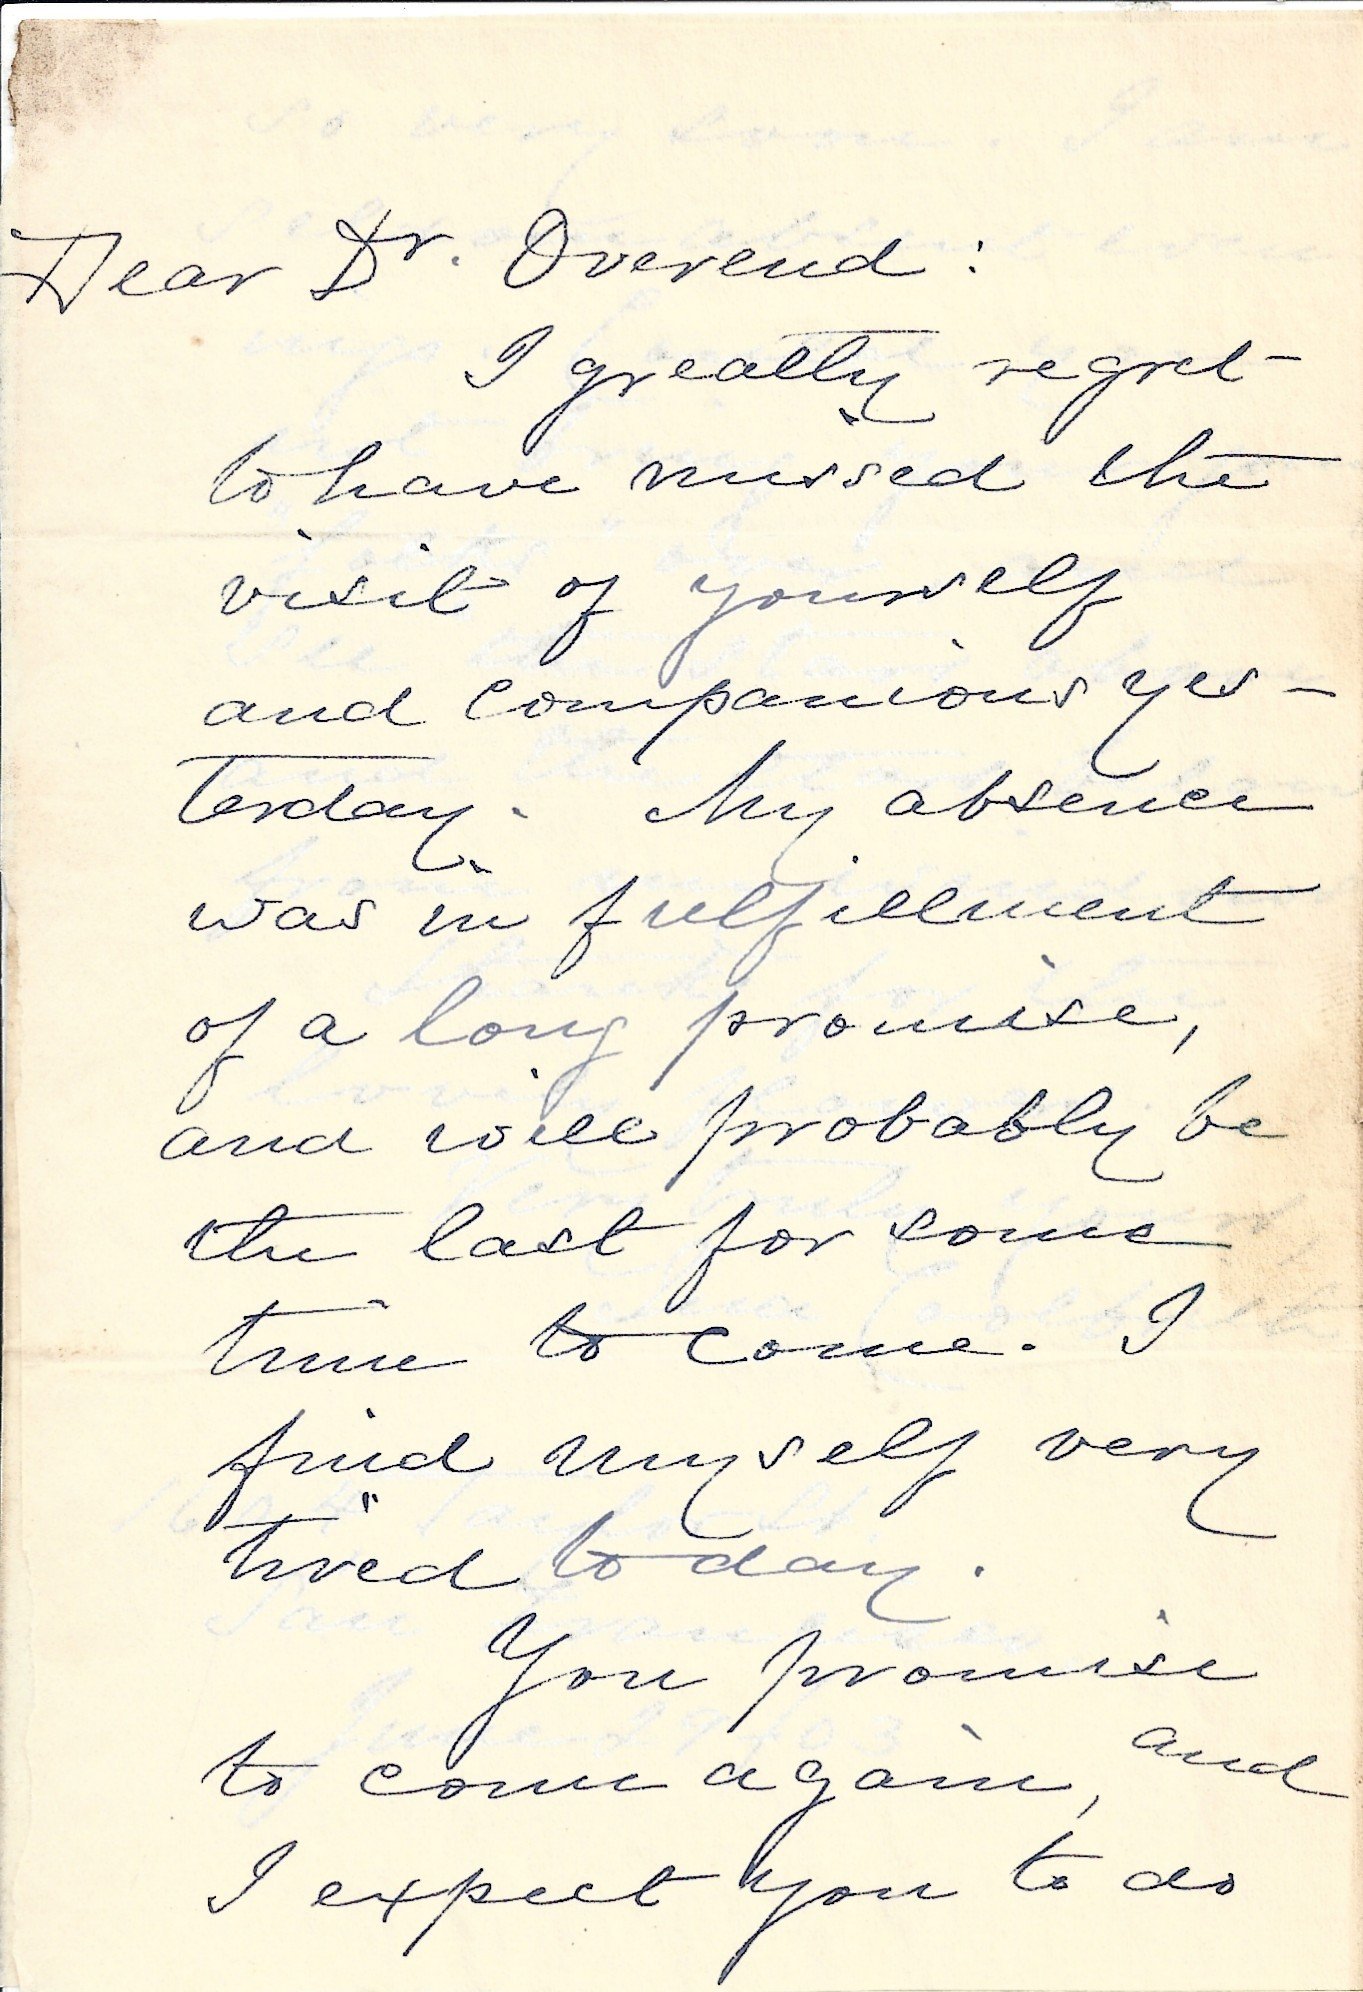 Dear Dr. Overend:
I greatly regret
to have missed the
visit of yourself
and companions yes-
terday. My absence
was in fulfillment
of a long promise,
and will probably be
the last for some
time to come. I
find myself very
tired to day.
You promise
to come again, and
I expect you to do